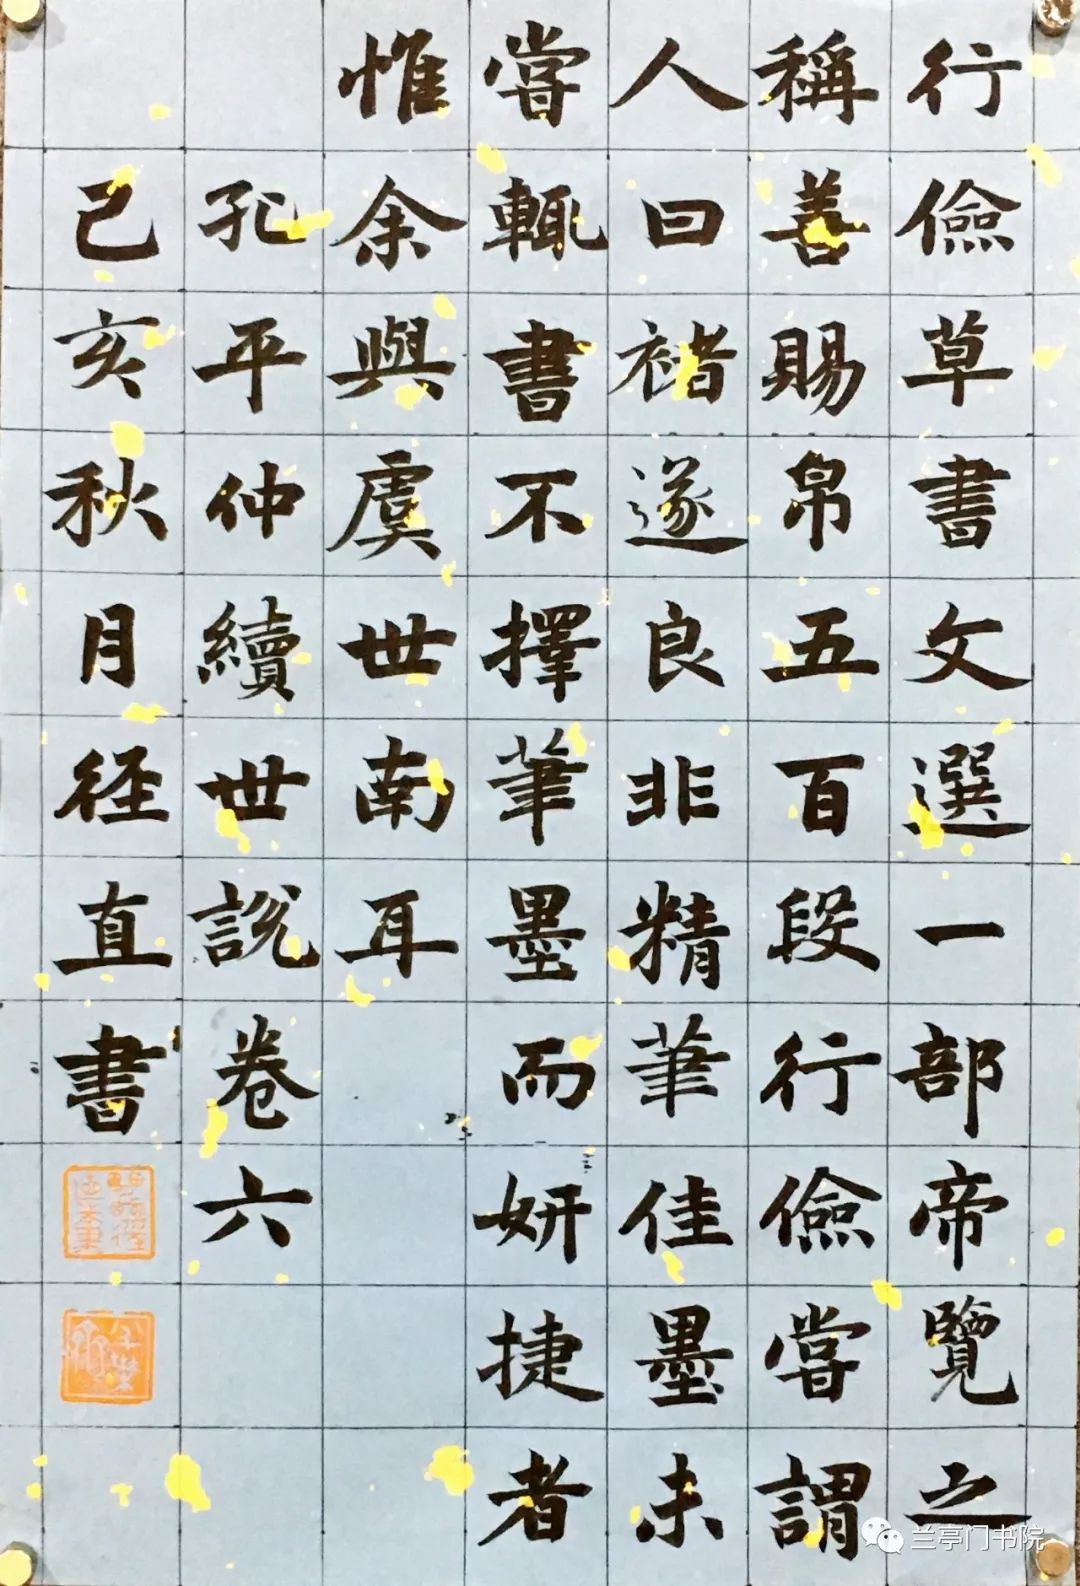 行儉草書文選一部帝覽之
稱善賜帛五百段行儉嘗謂
人曰褚遂良非精筆佳墨未
嘗輒書不擇筆墨而妍捷者
惟余與虞世南耳
孔平仲續世說卷六
己亥秋月径直書
兰亭门书院